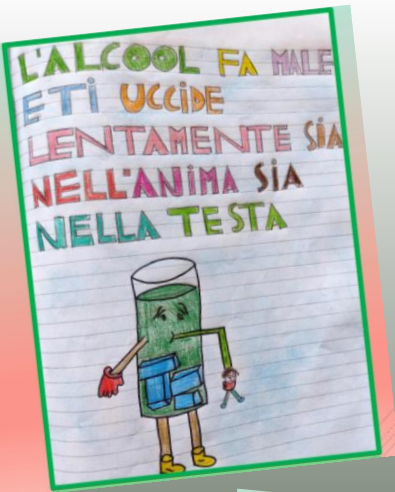 L'ALCOOL FA MALE
E TI UCCIDE
LENTAMENTE SIA
NELL'ANIMA SIA
NELLA TESTA